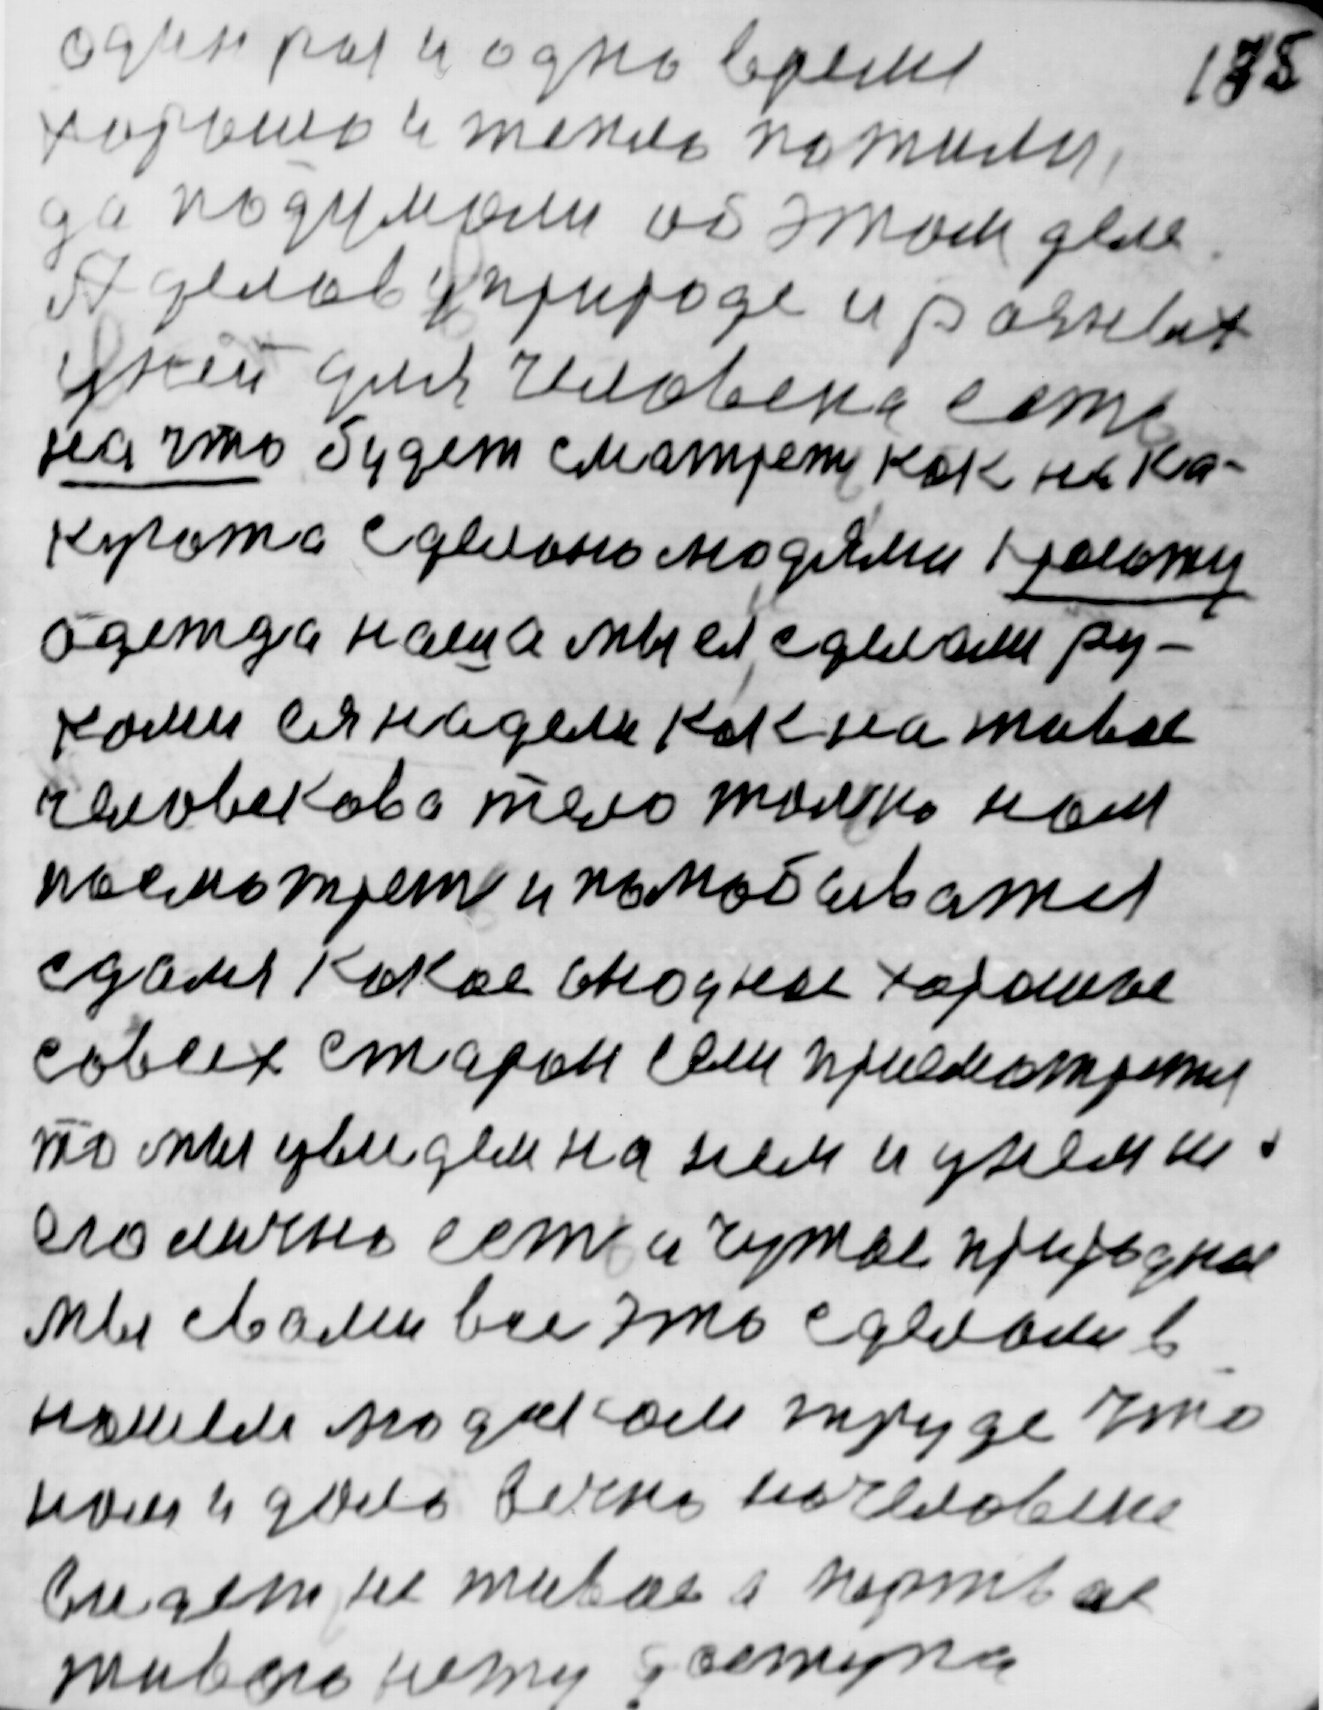 175
один раз и одно время
хорошо и тепло пожили,
да подумали об этом деле.
А делов у природе и разных
у ней для человека есть
на что будет сматреть как на ка-
куюта сделано людями красоту
одежда наша мы ея сделали ру-
ками ея надели как на живое
человекова тело можно нам
посмотреть и полюбаватся
сдаля какое модное хорошое
совсех старон если присмотретця
то мы увидем на нем и у нем не
его лично есть и чужое природное
мы свами все это сделали в
нашем людском труде что
нам и дало вечно на человеке
видеть не живое а мертвое
живого нету доступа